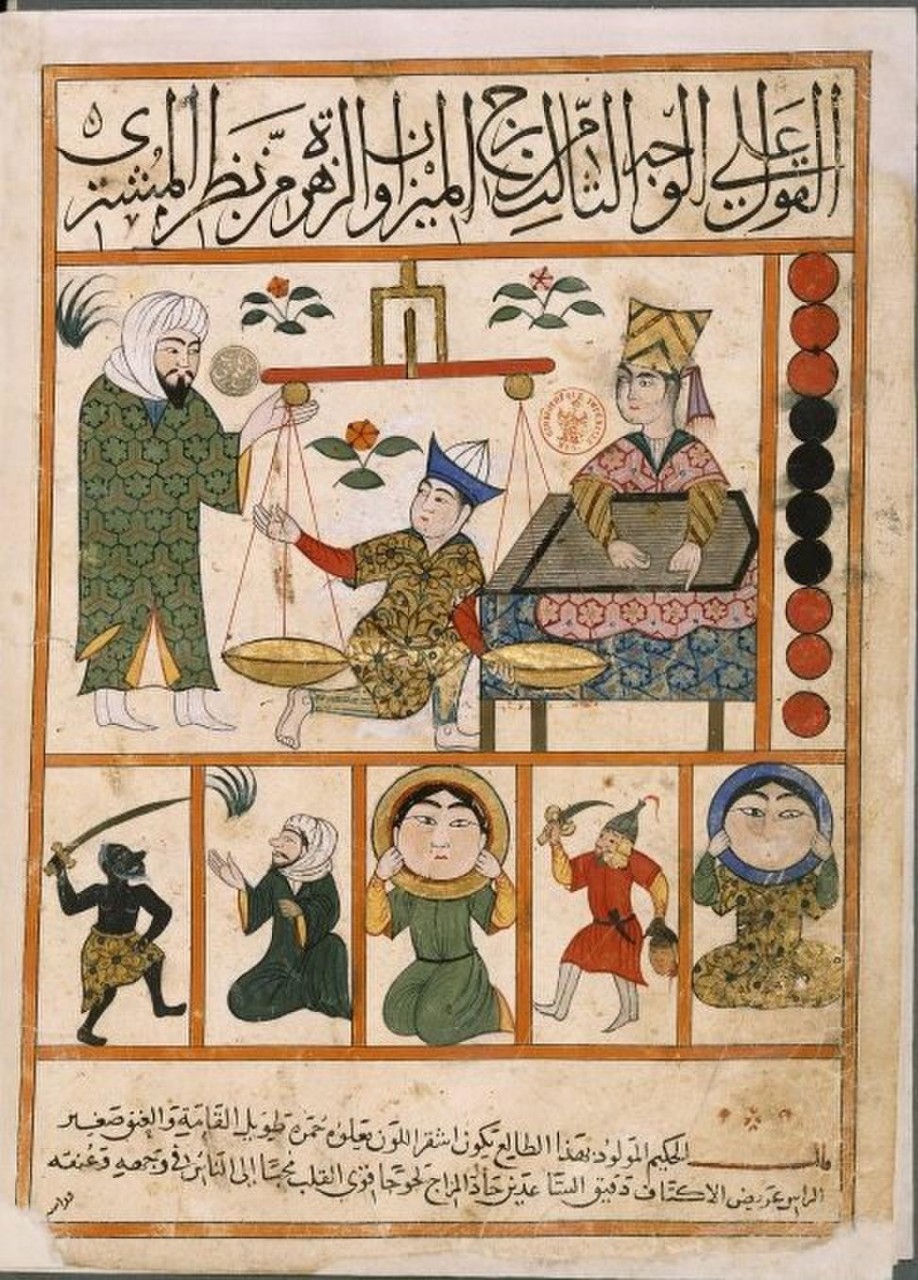 القول علي الوجه الميزان والزهره من نظر المشترى
قال الحكيم المولود بهذا الطالع يكون اشقر اللون يعلوه حمرة طويل القامة والعنق صغير
الراس عريض الاكتاف دقيق الساعدين حاد المزاج لحوحا قوى القلب محببا الى الناس فى وجهه وعنقه